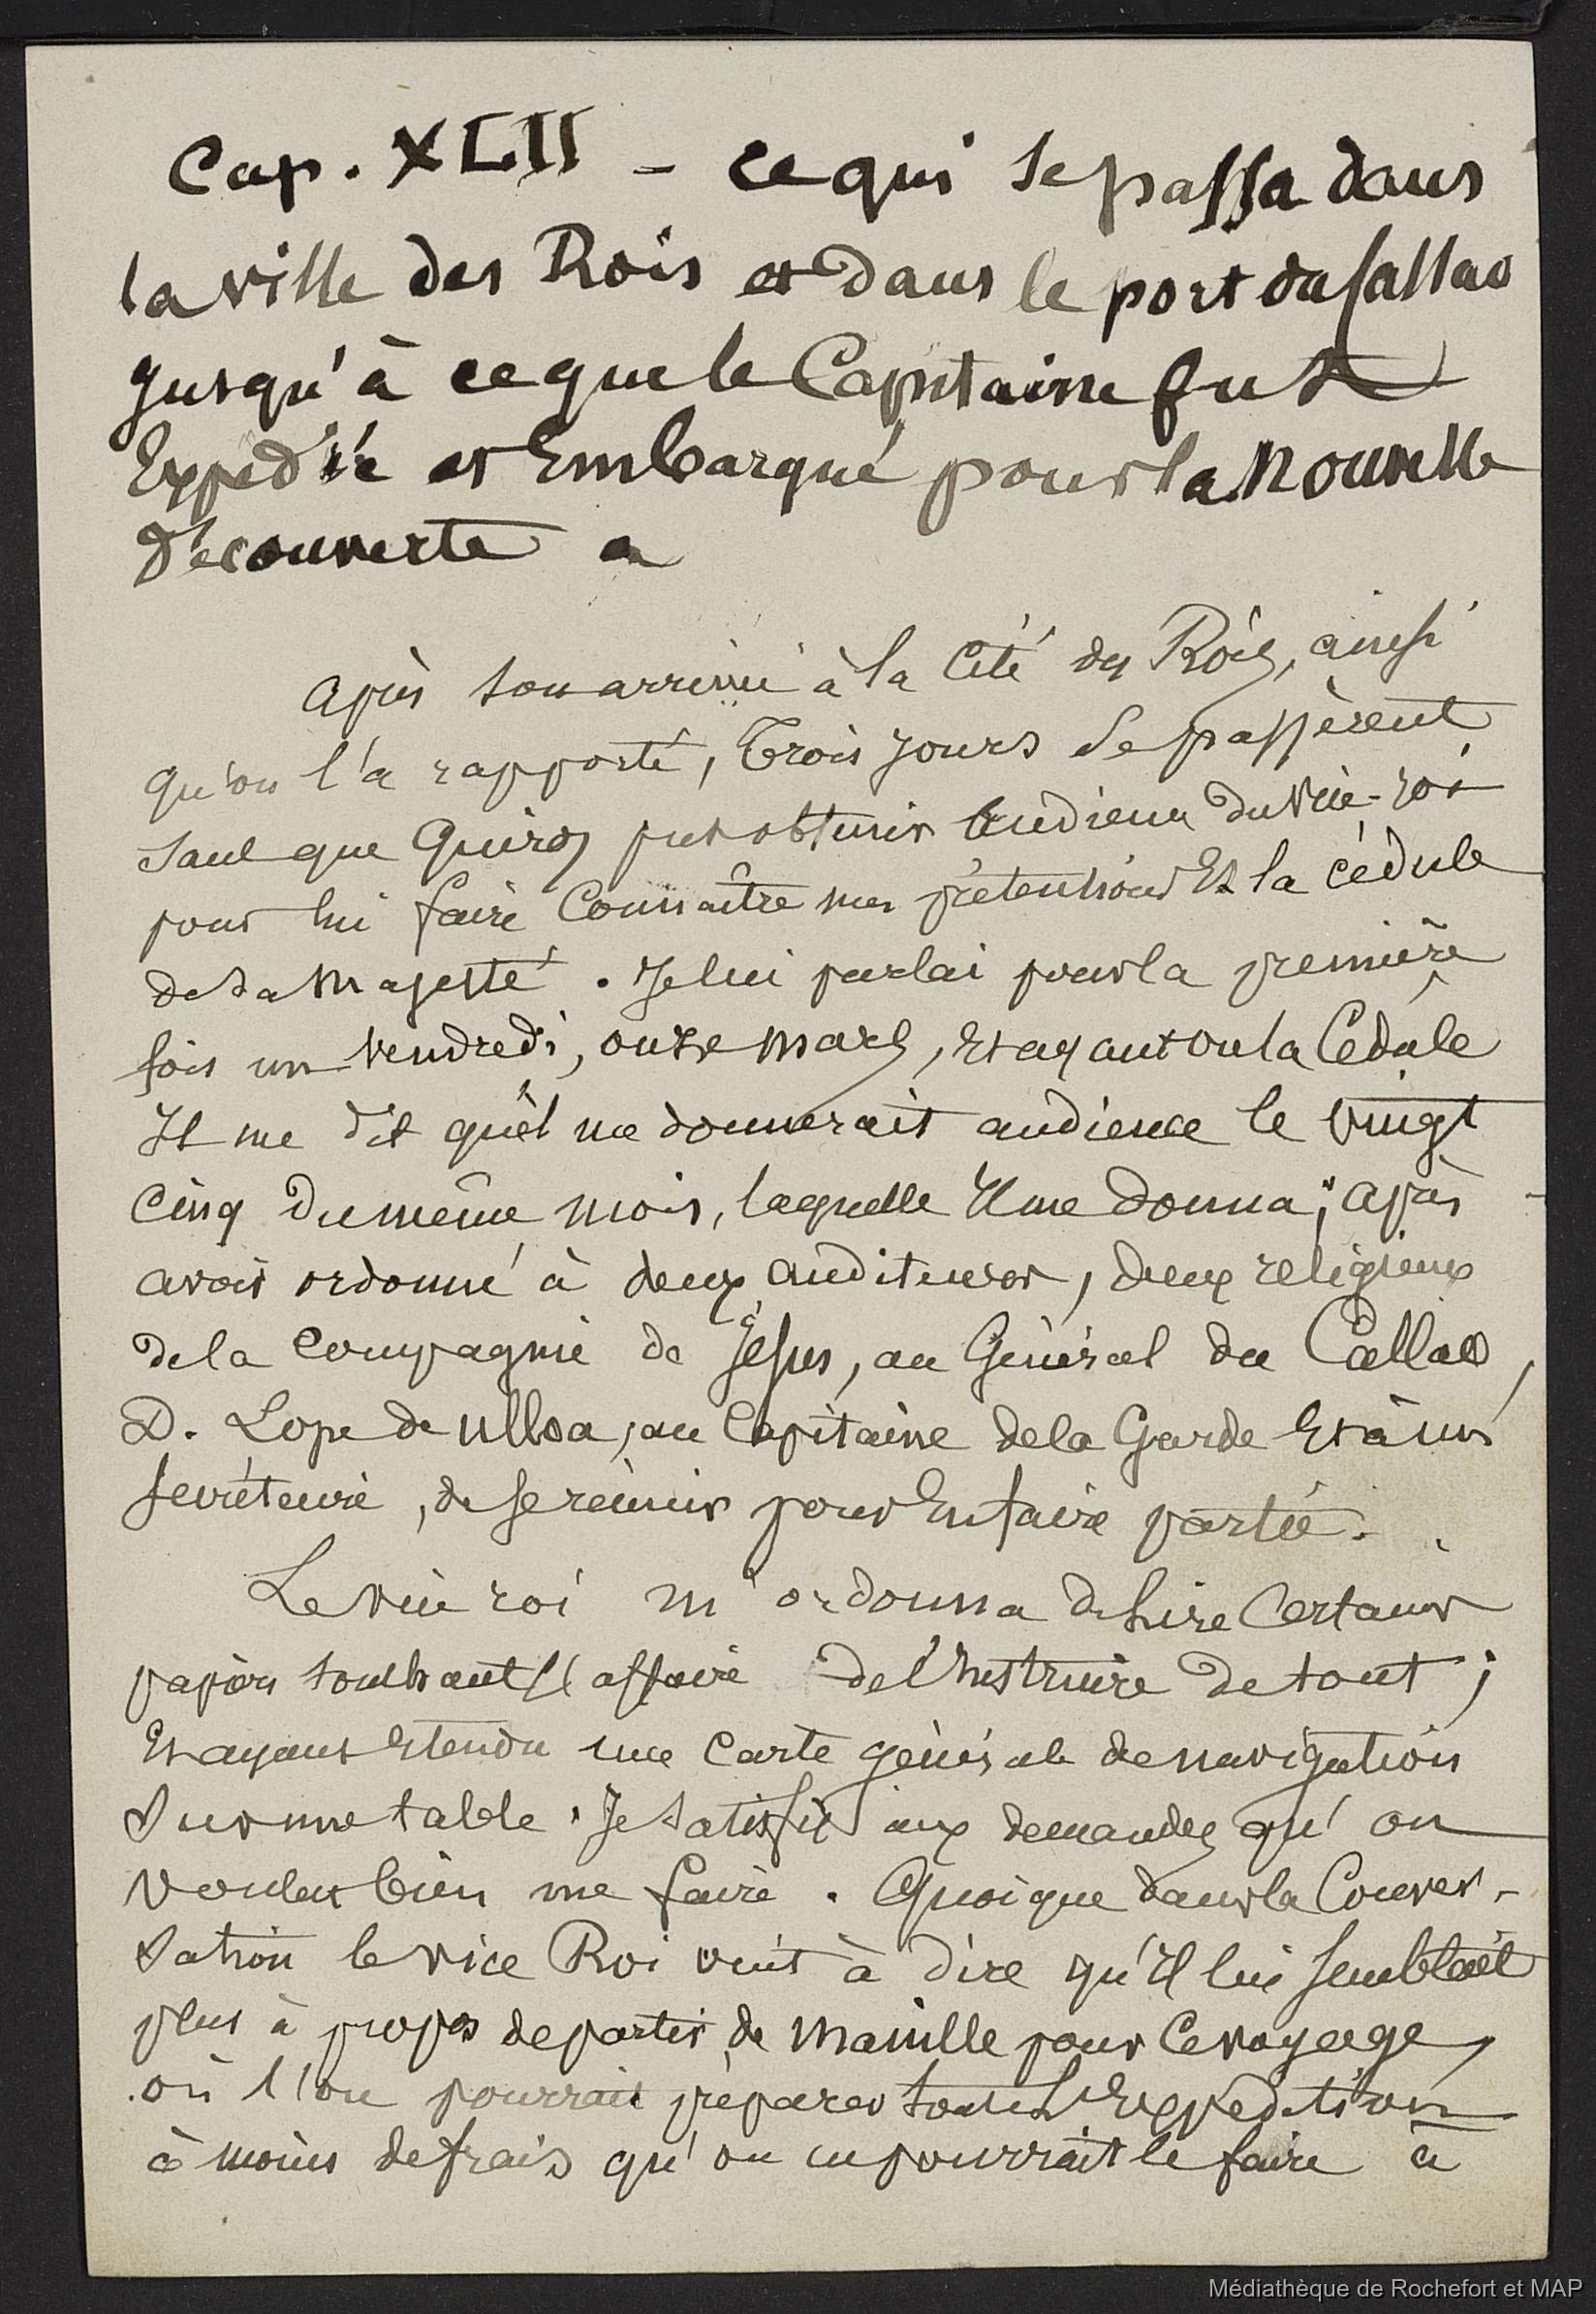 Cap. XLII – ce qui se passa dans
la ville des Rois et dans le port du Callao
jusqu'à ce que le Capitaine fut
Expédié et Embarqué pour la Nouvelle
Découverte
Après son arrivée à la Cité des Rois, ainsi
qu'on l'a rapporté, trois jours se passèrent
sans que Quiros put obtenir audience du vice-roi
pour lui faire Connaître mes prétentions Et la cédule
de Sa Majesté. Je lui parlai pour la première
fois un vendredi, onze mars, Et ayant vu la Cédule
Il me dit qu'il me donnerait audience le vingt
cinq du même mois, laquelle Il me donna, après
avoir ordonné à deux auditeurs, deux religieux
de la Compagnie de Jésus, au Général du Callao,
D. Lope de Ulloa, au Capitaine de la Garde Et à un
secrétaire, de se réunir pour En faire partie.
Le vice roi m'ordonna de lire Certains
papiers touchant l'affaire de l'Instruire de tout ;
Et ayant Etendu une Carte générale de navigation
Sur une table. Je satisfis aux demandes qu'on
voulut bien me faire. Quoique dans la Conver-
sation le vice Roi vint à dire qu'Il lui semblait
plus à propos de partir de Manille pour Ce voyage,
où l'on pourrait préparer toute L'Expédition
à moins de frais qu'on ne pourrait le faire à
Médiathèque de Rochefort et MAP